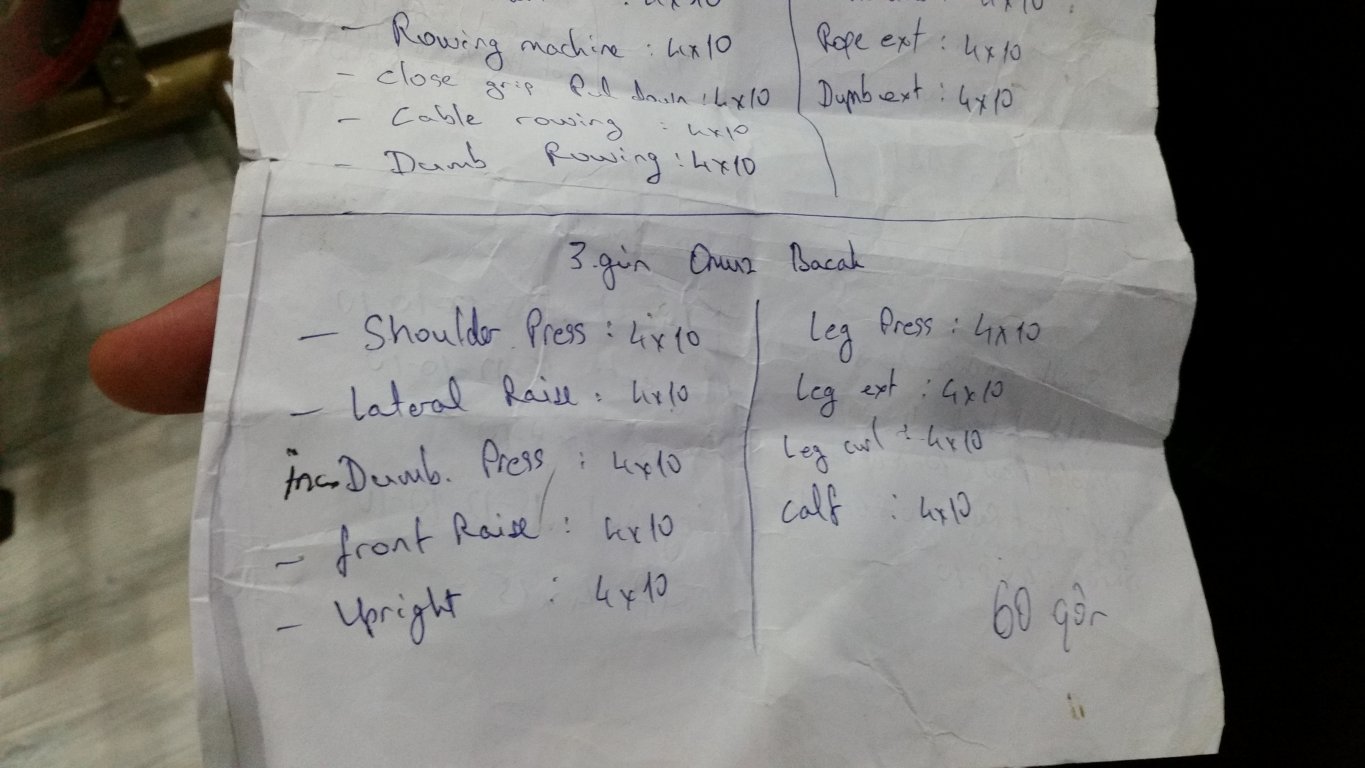 - Rowing machine : 4x10
- Close grip Pul down : 4x10
- Cable rowing : 4x10
- Dumb Rowing : 4x10
Rope ext : 4x10
Dumb ext : 4x10
3.gün Omuz Bacak
- Shoulder Press : 4x10
- Lateral Raise : 4x10
inc Dumb. Press : 4x10
- front Raise : 4x10
- Upright : 4x10
Leg Press : 4x10
Leg ext : 4x10
Leg curl : 4x10
Calf : 4x10
60